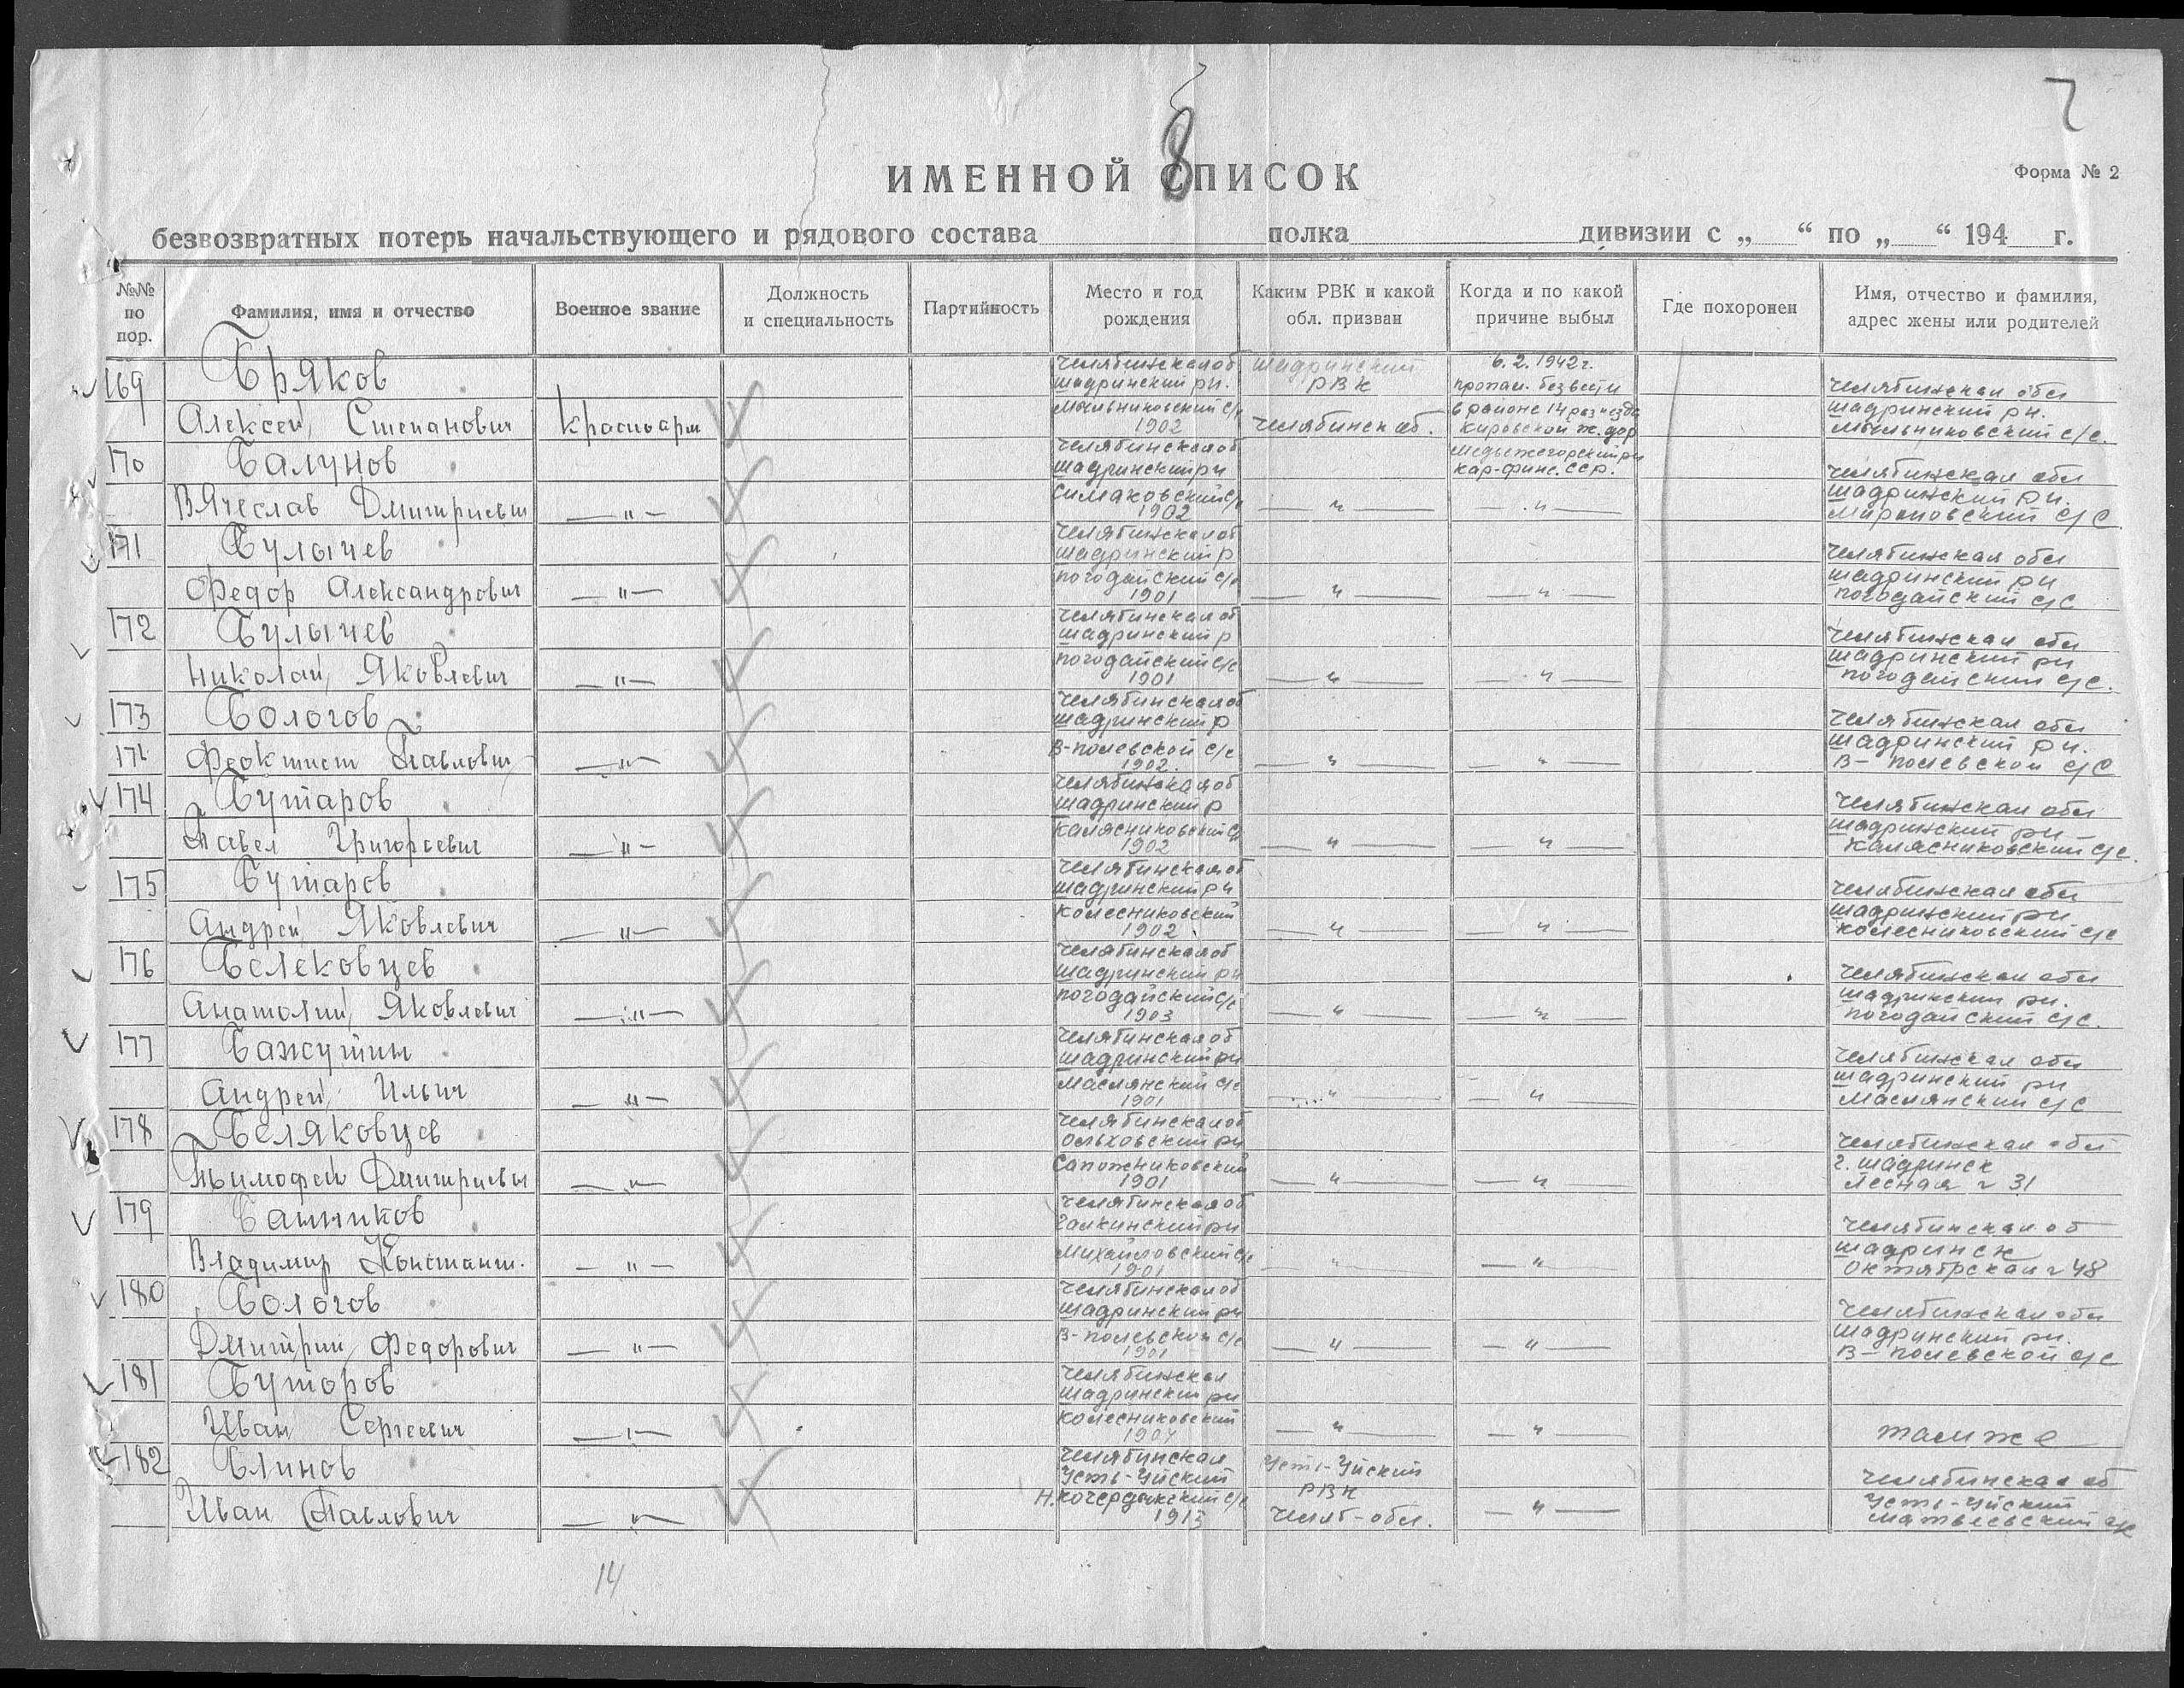 7
8
ИМЕННОЙ СПИСОК
Форма № 2
безвозвратных потерь начальствующего и рядового состава полка дивизии с „ “ по „ “ 194 г.
№№ по пор.
Фамилия, имя и отчество
Военное звание
Должность и специальность
Партийность
Место и год рождения
Каким РВК и какой обл. призван
Когда и по какой причине выбыл
Где похоронен
Имя, отчество и фамилия, адрес жены или родителей
169 Бряков Челябинская об Шадринский 6.2.1942г.
шадринский рн. РВК пропал. без вести Челябинская обл
Алексей Степанович Красноарм Мыльниковский с/с 1902 Челябинск об. в районе 14 разъезда Кировской ж.дор шадринский рн. Мыльниковский с/с.
170 Балунов Челябинская об шадринский рн Медвежегорский рн Кар-финс. ССР. Челябинская обл
Вячеслав Дмитриевич —"— Симаковский с/с 1902 —"— —"— шадринский рн. Мироновский с/с
171 Булычев Челябинская об шадринский р Челябинская обл
Федор Александрович —"— погодайский с/с 1901 —"— —"— шадринский рн погодайский с/с
172 Булычев Челябинская об шадринский р Челябинская обл
Николай Яковлевич —"— погодайский с/с 1901 —"— —"— шадринский рн погодайский с/с.
173 Бологов Челябинская об шадринский р Челябинская обл
Феоктист Павлович —"— В-полевской с/с 1902. —"— —"— шадринский рн. В-полевской с/с
174 Бутаров Челябинская об шадринский р Челябинская обл
Павел Григорьевич —"— Калясниковский с/с 1902 —"— —"— шадринский рн Калясниковский с/с.
175 Бутаров Челябинская об шадринский рн Челябинская обл
Андрей Яковлевич —"— Колесниковский 1902 —"— —"— шадринский рн Колесниковский с/с
176 Белековцев Челябинская об шадринский рн Челябинская обл
Анатолий Яковлевич —"— погодайский с/с 1903 —"— —"— шадринский рн. погодайский с/с.
177 Бажутин Челябинская об шадринский рн Челябинская обл
Андрей Ильич —"— Маслянский с/с 1901 —"— —"— шадринский рн Маслянский с/с
178 Беляковцев Челябинская об Ольховский рн Челябинская обл
Тимофей Дмитриевич —"— Сапожниковский 1901 —"— —"— г. шадринск Лесная 31
179 Башников Челябинская об Галкинский рн Челябинская об
Владимир Констант. —"— Михайловский с/с 1901 —"— —"— шадринск Октябрская 48
180 Бологов Челябинская об шадринский рн Челябинская обл
Дмитрий Федорович —"— В-полевской с/с 1901 —"— —"— шадринский рн. В-полевской с/с
181 Буторов Челябинская шадринский рн
Иван Сергеевич —"— Колесниковский —"— —"— там же
182 Блинов Челябинская Усть-Уйский Усть-Уйский Челябинская об
Иван Павлович —"— Н. Кочердыкский с/с 1913 РВК Челяб-обл. —"— Усть-Уйский Матвеевский с/с
14